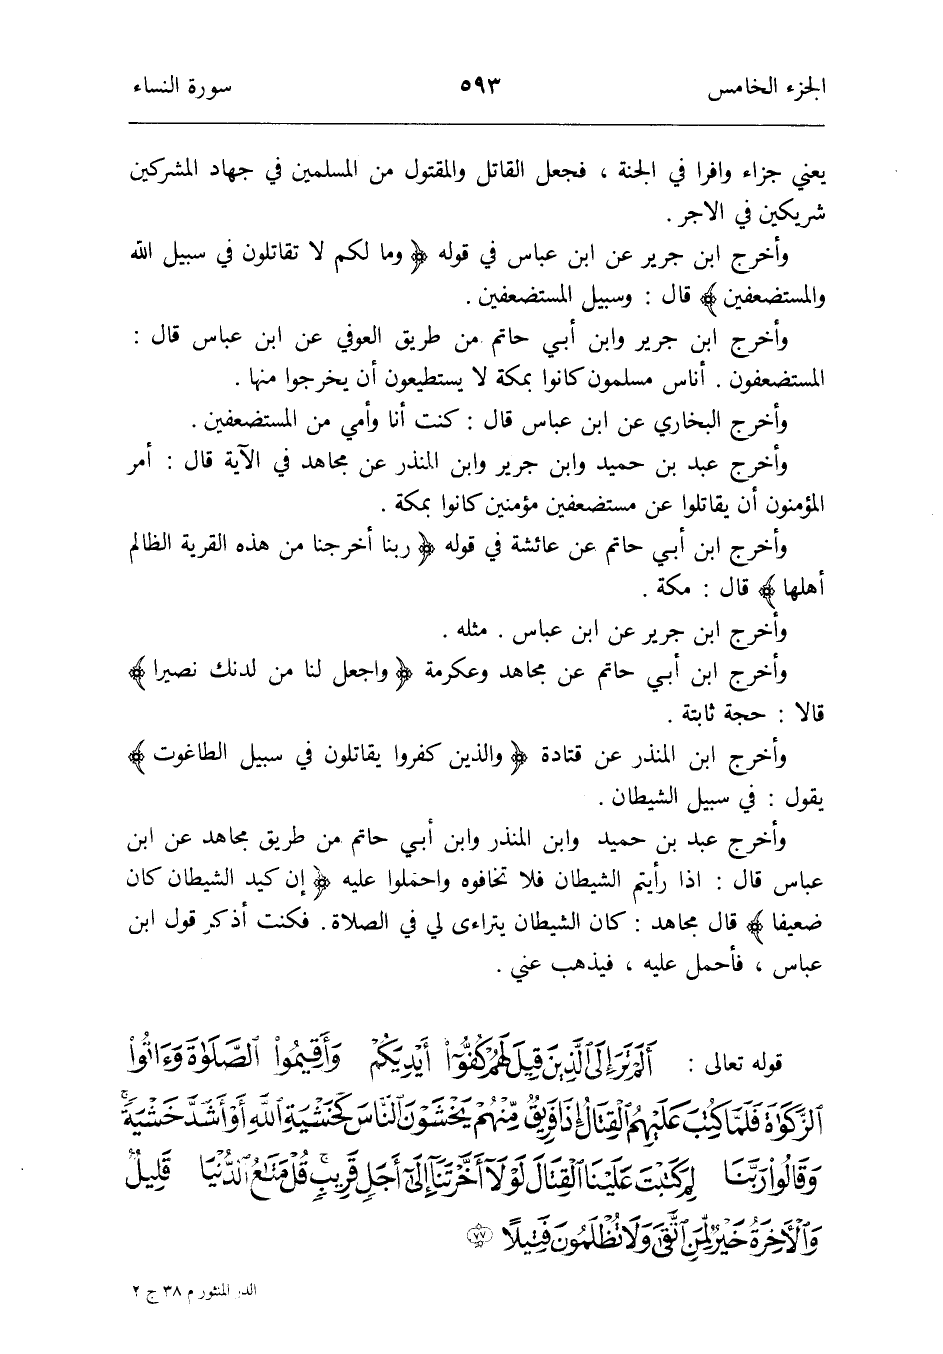 الجزء الخامس ٥٩٣ سورة النساء
يعني جزاء وافرا في الجنة ، فجعل القاتل والمقتول من المسلمين في جهاد المشركين
شريكين في الاجر .
وأخرج ابن جرير عن ابن عباس في قوله ﴿ وما لكم لا تقاتلون في سبيل الله
والمستضعفين ﴾ قال : وسبيل المستضعفين .
وأخرج ابن جرير وابن أبي حاتم من طريق العوفي عن ابن عباس قال :
المستضعفون . أناس مسلمون كانوا بمكة لا يستطيعون أن يخرجوا منها .
وأخرج البخاري عن ابن عباس قال : كنت أنا وأمي من المستضعفين .
وأخرج عبد بن حميد وابن جرير وابن المنذر عن مجاهد في الآية قال : أمر
المؤمنون أن يقاتلوا عن مستضعفين مؤمنين كانوا بمكة .
وأخرج ابن أبي حاتم عن عائشة في قوله ﴿ ربنا أخرجنا من هذه القرية الظالم
أهلها ﴾ قال : مكة .
وأخرج ابن جرير عن ابن عباس . مثله .
وأخرج ابن أبي حاتم عن مجاهد وعكرمة ﴿ واجعل لنا من لدنك نصيرا ﴾
قالا : حجة ثابتة .
وأخرج ابن المنذر عن قتادة ﴿ والذين كفروا يقاتلون في سبيل الطاغوت ﴾
يقول : في سبيل الشيطان .
وأخرج عبد بن حميد وابن المنذر وابن أبي حاتم من طريق مجاهد عن ابن
عباس قال : اذا رأيتم الشيطان فلا تخافوه واحملوا عليه ﴿ إن كيد الشيطان كان
ضعيفا ﴾ قال مجاهد : كان الشيطان يتراءى لي في الصلاة . فكنت أذكر قول ابن
عباس ، فأحمل عليه ، فيذهب عني .
قوله تعالى : أَلَمْ تَرَ إِلَى ٱلَّذِينَ قِيلَ لَهُمْ كُفُّوٓا۟ أَيْدِيَكُمْ وَأَقِيمُوا۟ ٱلصَّلَوٰةَ وَءَاتُوا۟
ٱلزَّكَوٰةَ فَلَمَّا كُتِبَ عَلَيْهِمُ ٱلْقِتَالُ إِذَا فَرِيقٌ مِّنْهُمْ يَخْشَوْنَ ٱلنَّاسَ كَخَشْيَةِ ٱللَّهِ أَوْ أَشَدَّ خَشْيَةً ۚ
وَقَالُوا۟ رَبَّنَا لِمَ كَتَبْتَ عَلَيْنَا ٱلْقِتَالَ لَوْلَآ أَخَّرْتَنَآ إِلَىٰٓ أَجَلٍ قَرِيبٍ ۗ قُلْ مَتَٰعُ ٱلدُّنْيَا قَلِيلٌ
وَٱلْأَخِرَةُ خَيْرٌ لِّمَنِ ٱتَّقَىٰ وَلَا تُظْلَمُونَ فَتِيلًا ٧٧
الدر المنثور م ٣٨ ج ٢